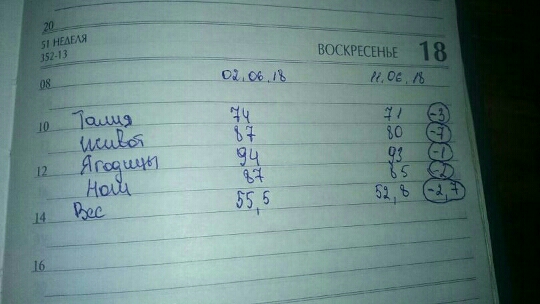 20
51 НЕДЕЛЯ
352-13
ВОСКРЕСЕНЬЕ 18
08 02.06.18 11.06.18
10 Талия 74 71 -3
Живот 87 80 -7
12 Ягодицы 94 93 -1
Ноги 87 85 -2
14 Вес 55,5 52,8 -2,7
16